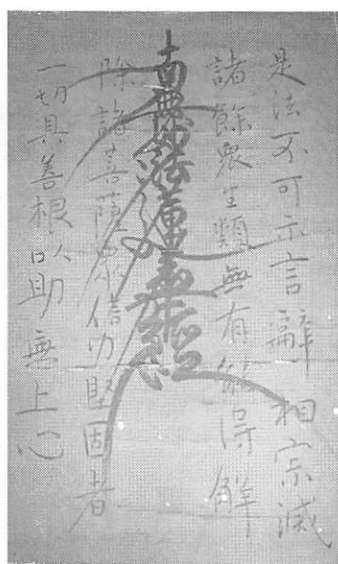 是法不可示言辭相寂滅
諸餘衆生類無有能得解
南無妙法蓮華經
除諸菩薩衆信力堅固者
一切具善根以助無上心